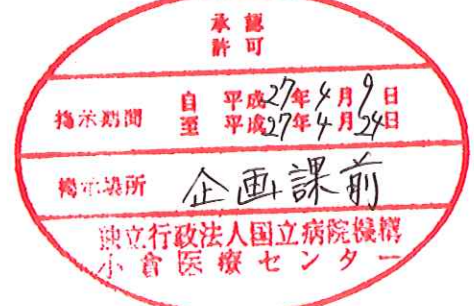 承認
許可
掲示期間
自 平成27年4月9日
至 平成27年4月24日
掲示場所 企画課前
独立行政法人国立病院機構
小倉医療センター